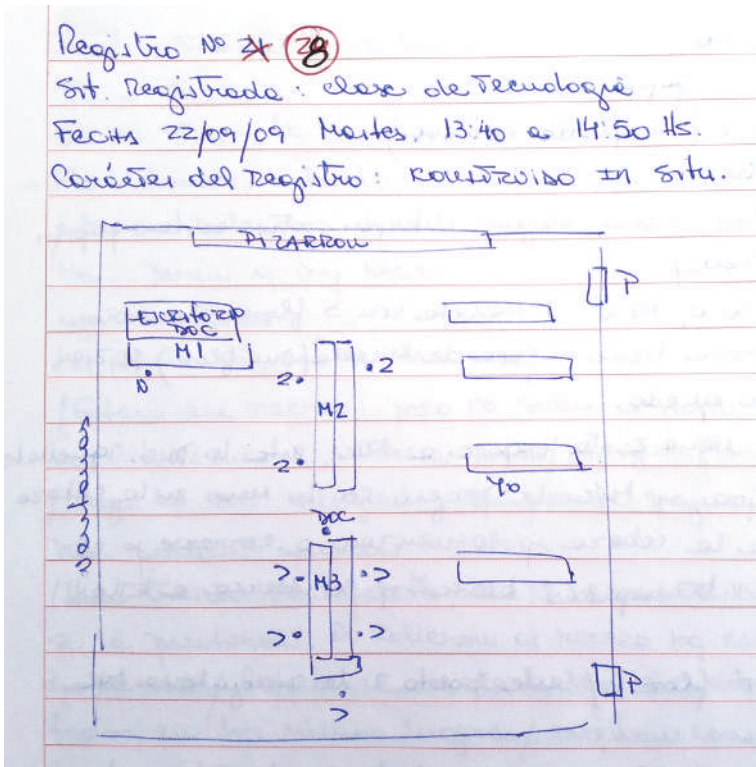 Registro Nº 21 28
Sit. Registrada: clase de Tecnología
Fecha 22/09/09 Martes. 13:40 a 14:50 Hs.
Carácter del Registro: Construido In Situ.
PIZARRON
P
ESCRITORIO
DOC
M1
Nº
2
2
M2
2
Yo
DOC
M3
P